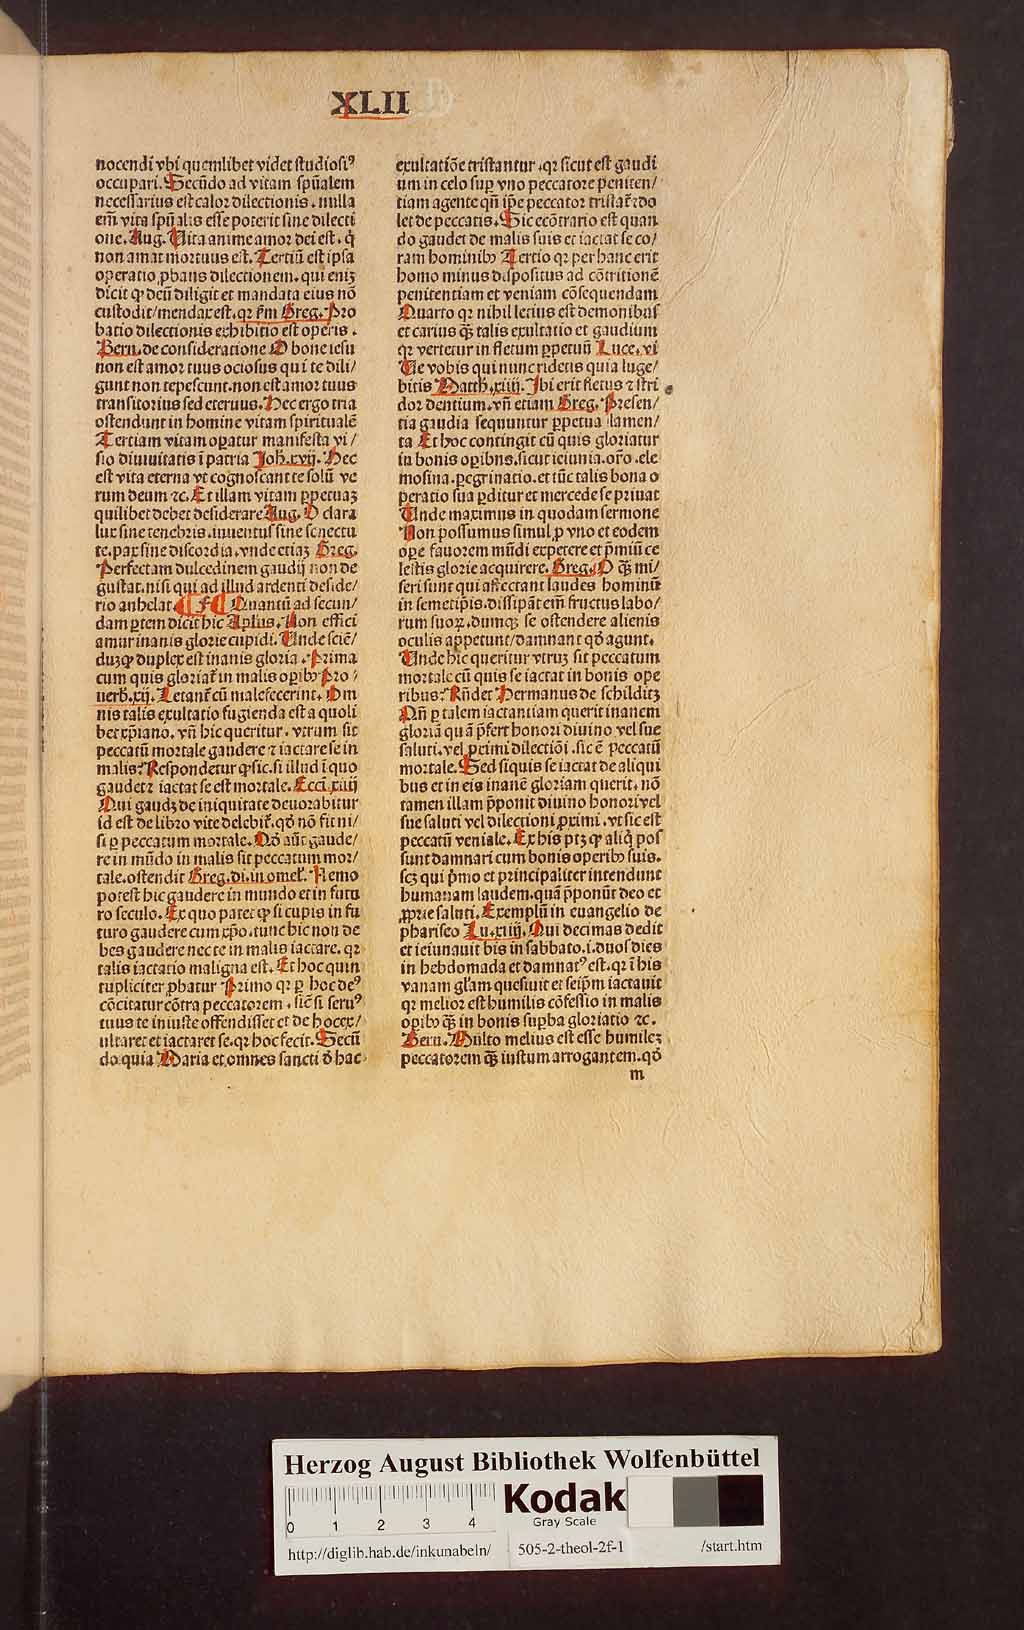 XLII
nocendi vbi quemlibet videt studiosiꝰ
occupari. Secūdo ad vitam spūalem
necessarius est calor dilectionis. nulla
em̄ vita spūalis esse poterit sine dilecti
one. Aug. Uita anime amor dei est. q̇
non amat mortuus est. Tertiū est ipsa
operatio ꝓbans dilectionem. qui eniꝫ
dicit ꝙ deū diligit et mandata eius nō
custodit/mendax est. qꝛ s̄m Greg. Pro
batio dilectionis exhibitio est operis.
Bern. de consideratione O bone iesu
non est amor tuus ociosus qui te dili/
gunt non tepescunt. non est amor tuus
transitorius sed eternus. Hec ergo tria
ostendunt in homine vitam spiritualē
Tertiam vitam oꝑatur manifesta vi/
sio diuinitatis ī patria Joh. xvij. Hec
est vita eterna vt cognoscant te solū ve
rum deum ⁊c. Et illam vitam ꝑpetuaꝫ
quilibet debet desiderare Aug. O clara
lux sine tenebris. iuuentus sine senectu
te. pax sine discordia. vnde etiaꝫ Greg.
Perfectam dulcedinem gaudij non de
gustat. nisi qui ad illud ardenti deside/
rio anhelat ¶ F ¶ Quantū ad secun/
dam ꝑtem dicit hic Aplus. Non effici
amur inanis glorie cupidi. Unde sciē/
duꝫ ꝙ duplex est inanis gloria. Prima
cum quis gloriat̄ in malis oꝑibꝰ Pro/
uerb. xij. Letant̄ cū malefecerint. Om
nis talis exultatio fugienda est a quoli
bet xp̄iano. vn̄ hic queritur. vtrum sit
peccatū mortale gaudere ⁊ iactare se in
malis? Respondetur ꝙ sic. si illud ī quo
gaudet ⁊ iactat se est mortale. Ecci. xiiij
Qui gaudꝫ de iniquitate deuorabitur
id est de libro vite delebit̄. qd̄ nō fit ni/
si ꝑ peccatum mortale. Qd̄ aūt gaude/
re in mūdo in malis sit peccatum mor/
tale. ostendit Greg. di. in omel̄. Nemo
potest hic gaudere in mundo et in futu
ro seculo. Ex quo patet ꝙ si cupis in fu
turo gaudere cum xp̄o. tunc hic non de
bes gaudere nec te in malis iactare. qꝛ
talis iactatio maligna est. Et hoc quin
tupliciter ꝓbatur Primo qꝛ ꝑ hoc deꝰ
cōcitatur cōtra peccatorem. sic̄ si seruꝰ
tuus te iniuste offendisset et de hoc ex/
ultaret et iactaret se. qꝛ hoc fecit. Secū
do quia Maria et omnes sancti d̄ hac
exultatiōe tristantur. qꝛ sicut est gaudi
um in celo suꝑ vno peccatore peniten/
tiam agente qn̄ ip̄e peccator tristat̄ ⁊ do
let de peccatis. Sic ecōtrario est quan
do gaudet de malis suis et iactat se co/
ram hominibꝰ Tertio qꝛ per hanc erit
homo minus dispositus ad cōtritionē
penitentiam et veniam cōsequendam
Quarto qꝛ nihil lecius est demonibus
et carius qꝫ̄ talis exultatio et gaudium
qꝛ vertetur in fletum ꝑpetuū Luce. vi
Ue vobis qui nunc ridetis quia luge/
bitis Matth. xiiij. Ibi erit fletus ⁊ stri
dor dentium. vn̄ etiam Greg. Presen/
tia gaudia sequuntur ꝑpetua lamen/
ta Et hoc contingit cū quis gloriatur
in bonis oꝑibus. sicut ieiunia. or̄o. ele
mosina. ꝑegrinatio. et tūc talis bona o
peratio sua ꝑditur et mercede se priuat
Unde maximus in quodam sermone
Non possumus simul ꝓ vno et eodem
oꝑe fauorem mūdi expetere et p̄miū ce
lestis glorie acquirere. Greg. O qꝫ̄ mi/
seri sunt qui affectant laudes hominū
in semetip̄is. dissipāt em̄ fructus labo/
rum suoꝝ. dumqꝫ se ostendere alienis
oculis appetunt/damnant qd̄ agunt.
Unde hic queritur vtruꝫ sit peccatum
mortale cū quis se iactat in bonis ope
ribus? Rn̄det Hermanus de schilditz
Qn̄ ꝑ talem iactantiam querit inanem
gloriā quā p̄fert honori diuino vel sue
saluti. vel ꝓximi dilectiōi. sic ē peccatū
mortale. Sed si quis se iactat de aliqui
bus et in eis inanē gloriam querit. nō
tamen illam p̄ponit diuino honori vel
sue saluti vel dilectioni ꝓximi. vt sic est
peccatū veniale. Ex his ptꝫ ꝙ aliq̇ pos
sunt damnari cum bonis oꝑibꝰ suis.
scꝫ qui p̄mo et principaliter intendunt
humanam laudem. quā p̄ponūt deo et
ꝓprie saluti. Exemplū in euangelio de
phariseo Lu. xviij. Qui decimas dedit
et ieiunauit bis in sabbato. i. duos dies
in hebdomada et damnatꝰ est. qꝛ ī his
vanam gl̄am quesiuit et seip̄m iactauit
qꝛ melior est humilis cōfessio in malis
oꝑibꝰ qꝫ̄ in bonis suꝑba gloriatio ⁊c.
Bern. Multo melius est esse humileꝫ
peccatorem qꝫ̄ iustum arrogantem. qd̄
m
Herzog August Bibliothek Wolfenbüttel
0 1 2 3 4
Kodak
Gray Scale
http://diglib.hab.de/inkunabeln/ 505-2-theol-2f-1 /start.htm